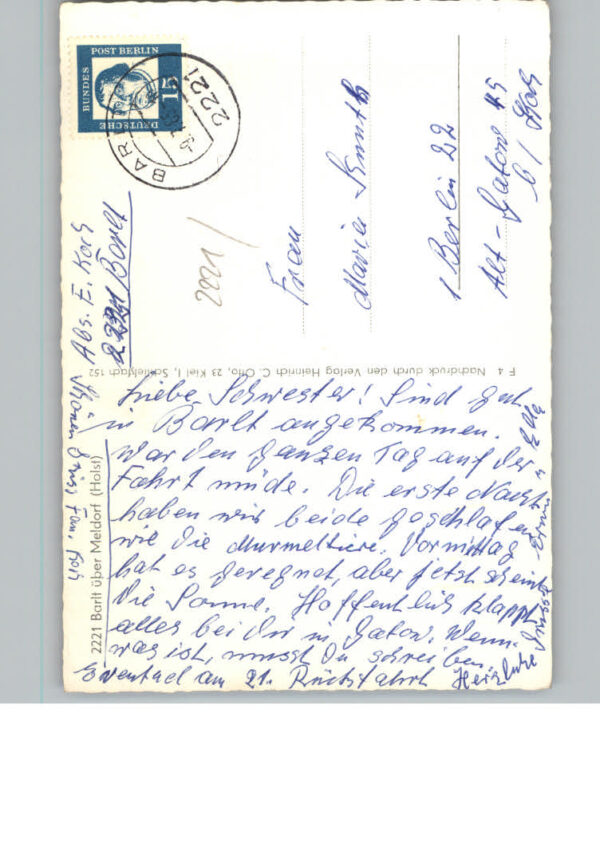 DEUTSCHE
BUNDES
POST BERLIN
15
2221
Abs. E. Koch
2221 Barlt
2221/
Frau
Maria
1 Berlin 22
Alt-Gatow 45
F 4 Nachdruck durch den Verlag Heinrich C. Otto, 23 Kiel 1, Schließfach 152
2221 Barlt über Meldorf (Holst)
Liebe Schwester! Sind gut
in Barlt angekommen.
War den ganzen Tag auf der
Fahrt müde. Die erste Nacht
haben wir beide geschlafen
wie die Murmeltiere. Vormittag
hat es geregnet, aber jetzt scheint
die Sonne. Hoffentlich klappt
alles bei dir in Gatow. Wenn
was ist, musst Du schreiben.
Eventuel am 21. Rückfahrt Herzliche
Grüsse Erwin u. Ella
Fam. Koch